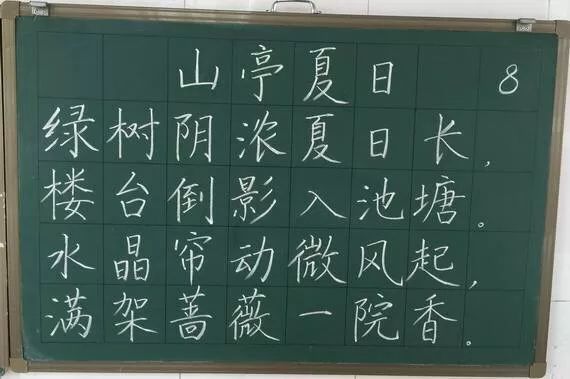 山亭夏日 8
绿树阴浓夏日长,
楼台倒影入池塘。
水晶帘动微风起,
满架蔷薇一院香。